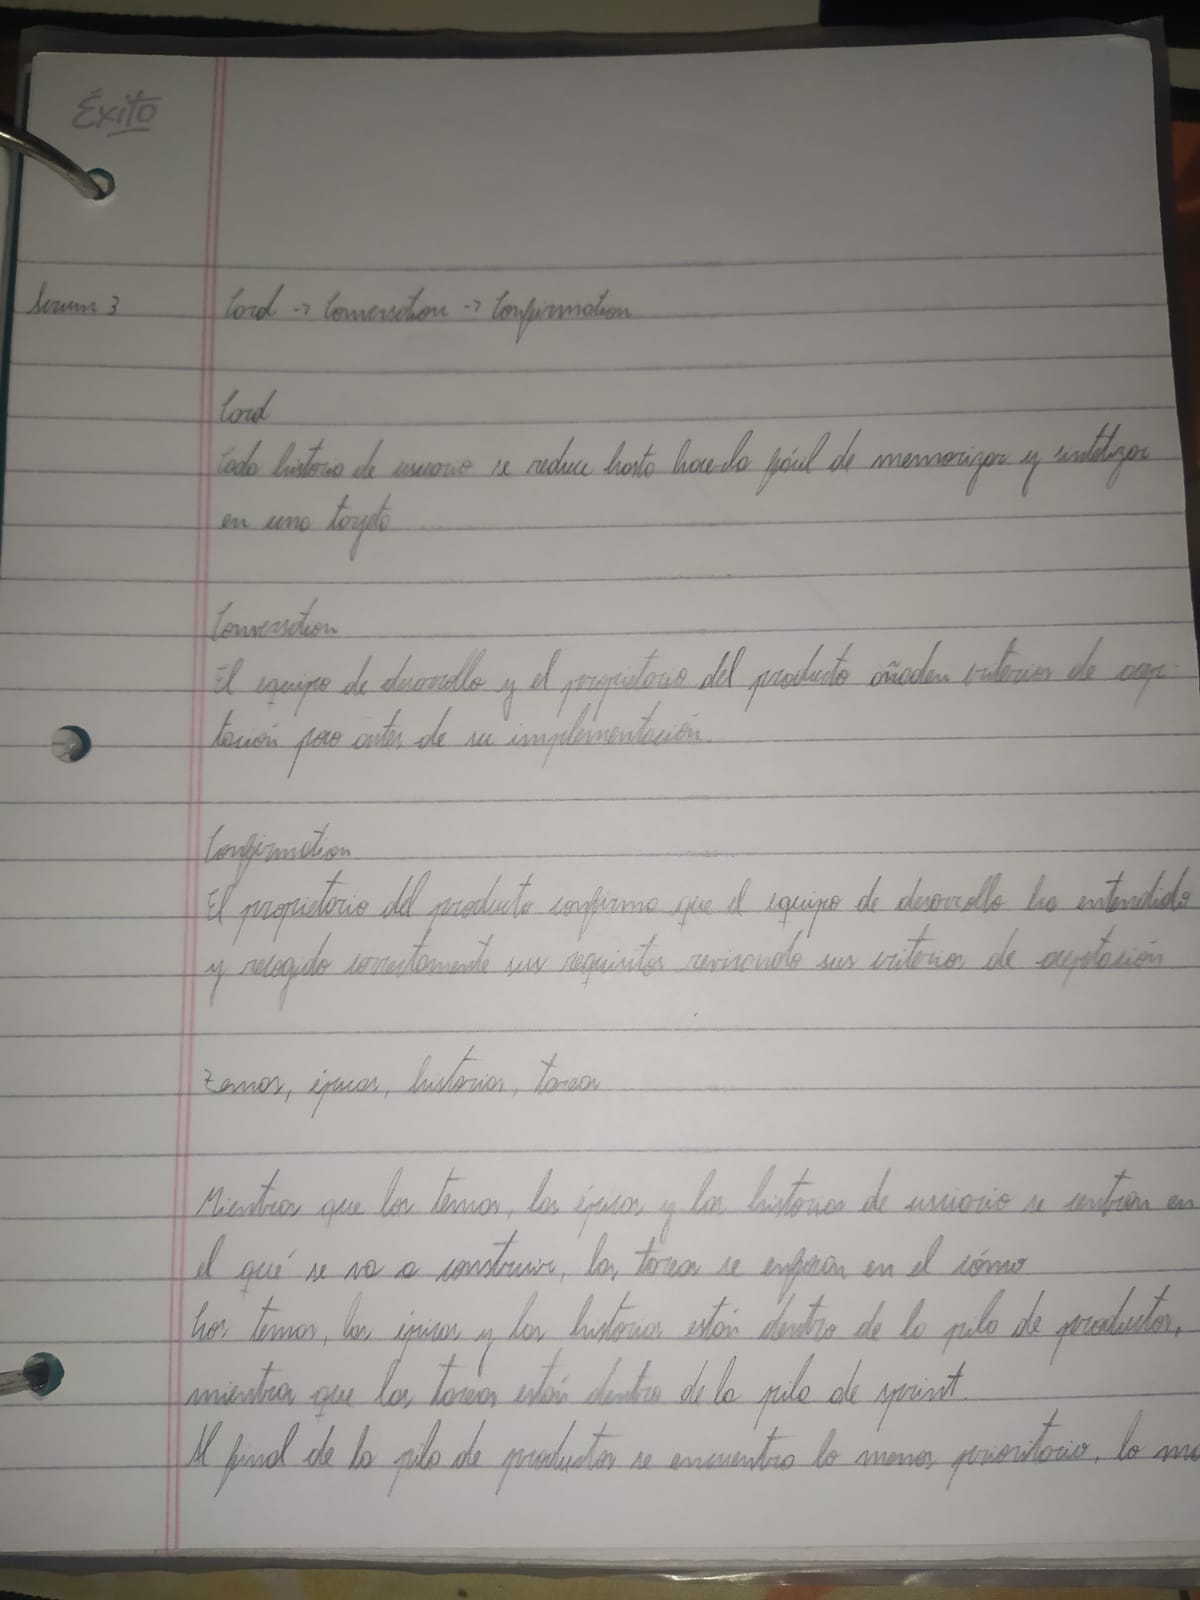 Éxito
Scrum 3
Card -> Conversation -> Confirmation
Card
Cada historia de usuario se reduce hasta hacerla fácil de memorizar y sintetizar
en una tarjeta
Conversation
El equipo de desarrollo y el propietario del producto añaden criterios de acep-
tación para antes de su implementación.
Confirmation
El propietario del producto confirma que el equipo de desarrollo ha entendido
y recogido correctamente sus requisitos revisando sus criterios de aceptación
Temas, épicas, historias, tareas
Mientras que los temas, las épicas y las historias de usuario se centran en
el qué se va a construir, las tareas se enfocan en el cómo
Los temas, las épicas y las historias están dentro de la pila de productos,
mientras que las tareas están dentro de la pila de sprint.
Al final de la pila de productos se encuentra lo menos prioritario, lo